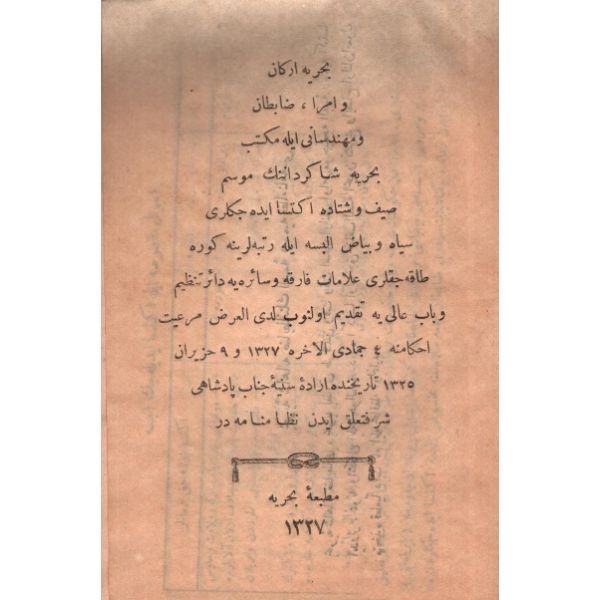 بحریه ارکان
و امرا ، ضابطان
و مهندسانی ایله مکتب
بحریه شاکرداننك موسم
صیف و شتاده اکتسا ایده جکلری
سیاه و بیاض البسه ایله رتبه لرینه کوره
طاقه جقلری علامات فارقه و سائره یه دائر تنظیم
و باب عالی یه تقدیم اولنوب لدی العرض مرعیت
احکامنه ٤ جمادی الاخره ١٣٢٧ و ٩ حزیران
١٣٢٥ تاریخنده ارادۀ سنیۀ جناب پادشاهی
شرفتعلق ایدن نظامنامه در
مطبعۀ بحریه
١٣٢٧